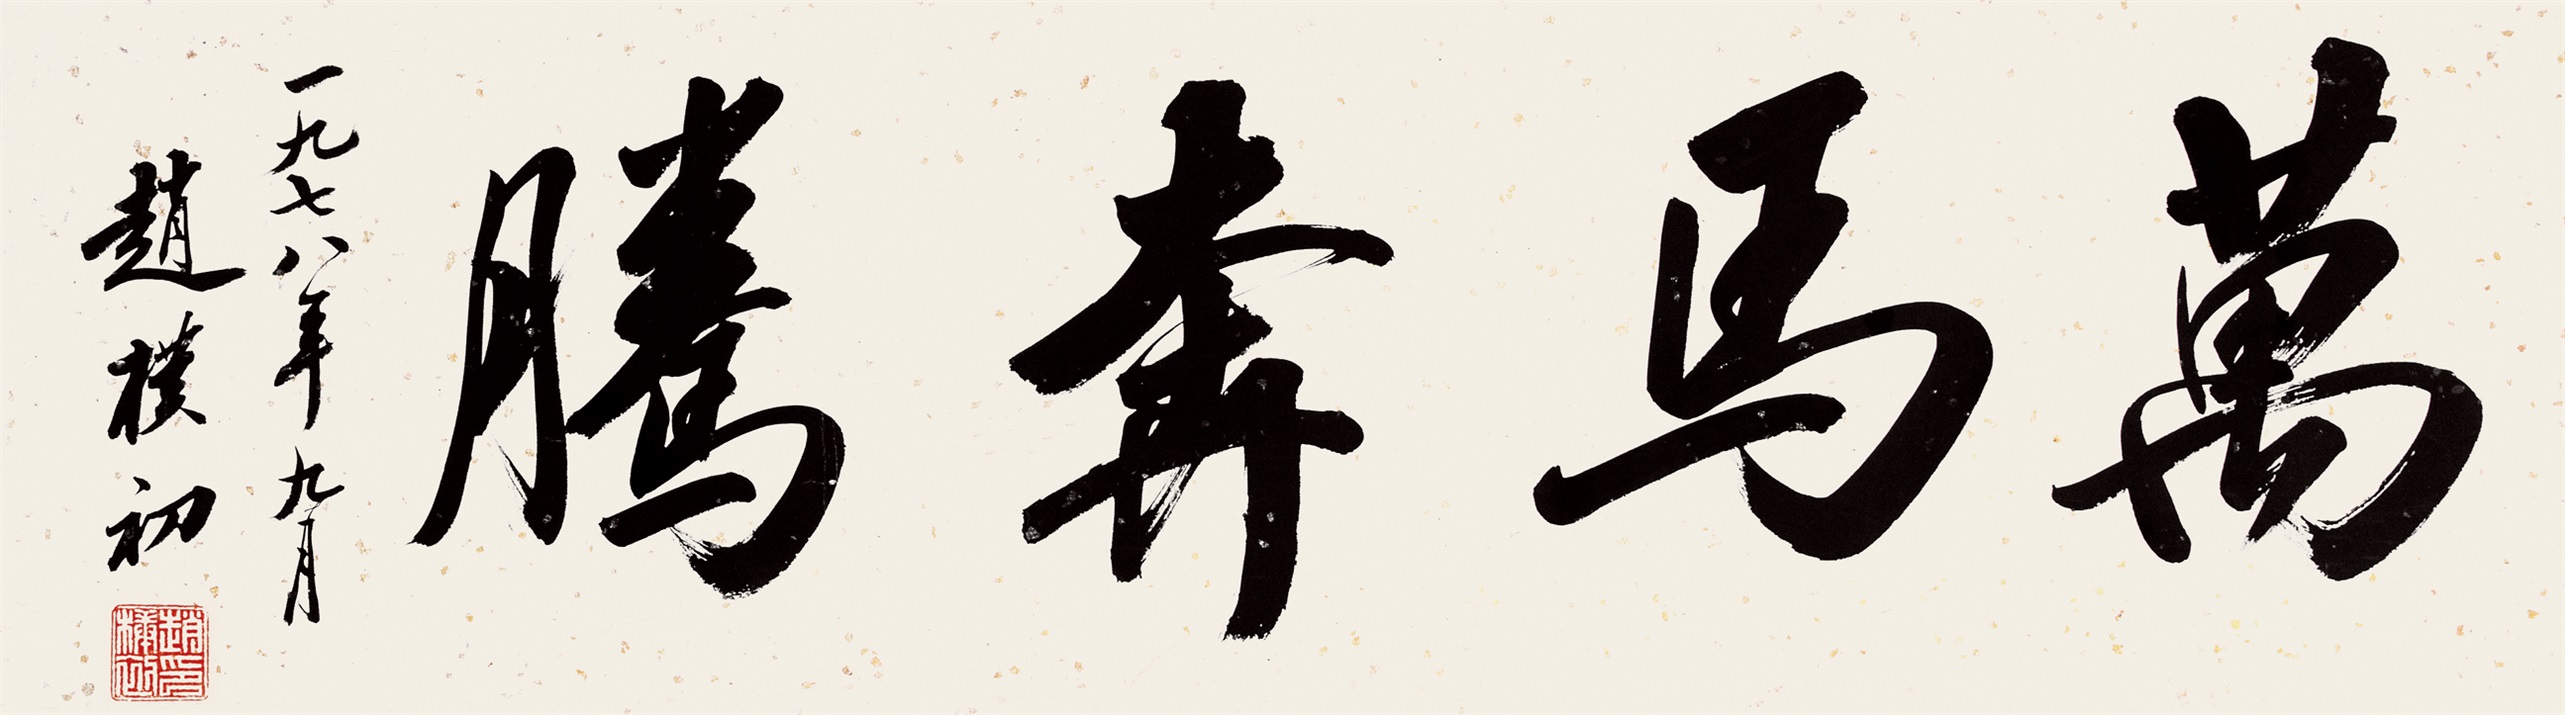 萬馬奔騰
一九七八年九月
趙樸初